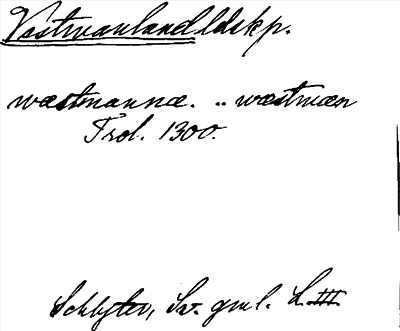 Västmanland ldskp.
wæstmannæ. .. wæstmæn
Trol. 1300.
Schlyter, Sv. gml. L. III